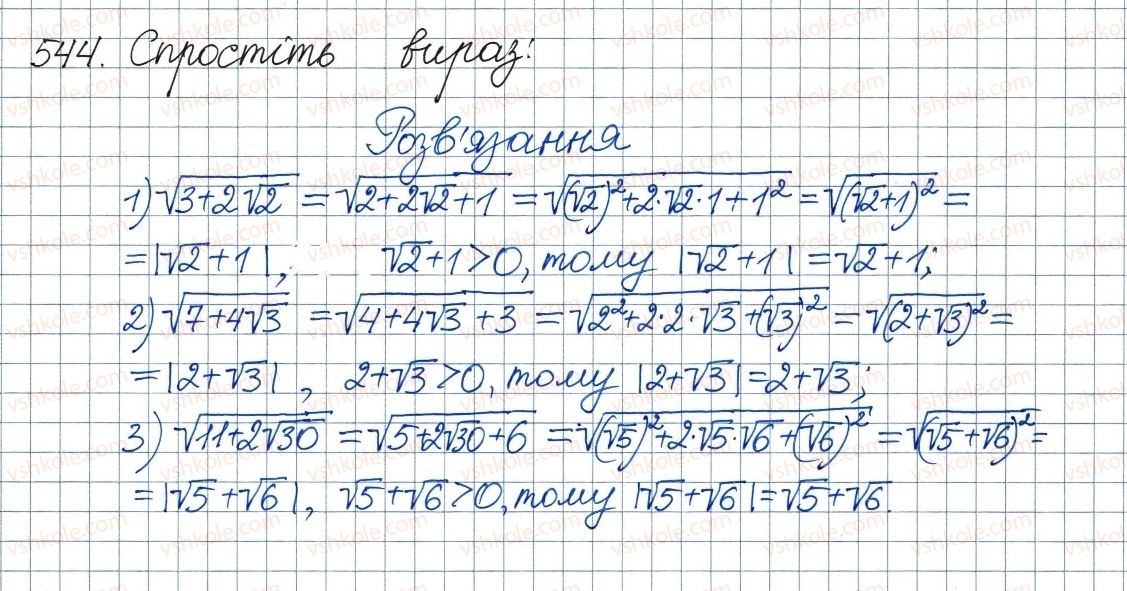 544. Спростіть вираз:
Розв'язання
1) √(3+2√2) = √(2+2√2+1) = √((√2)²+2·√2·1+1²) = √((√2+1)²) =
= |√2+1|, √2+1>0, тому |√2+1| = √2+1;
2) √(7+4√3) = √(4+4√3+3) = √(2²+2·2·√3+(√3)²) = √((2+√3)²) =
= |2+√3|, 2+√3>0, тому |2+√3|=2+√3;
3) √(11+2√30) = √(5+2√30+6) = √((√5)²+2·√5·√6+(√6)²) = √((√5+√6)²) =
= |√5+√6|, √5+√6>0, тому |√5+√6|=√5+√6.